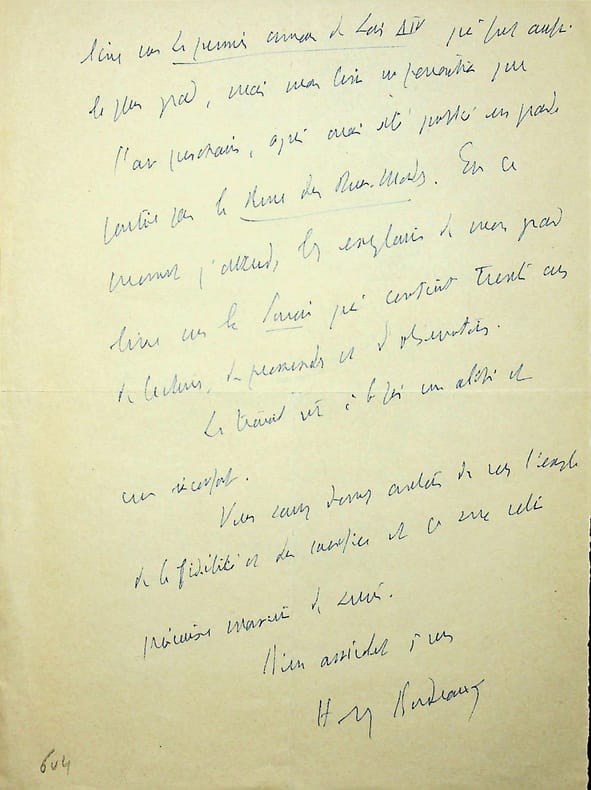 livre sur Le premier amour de Louis XIV qui fut aussi
le plus grand, mais mon livre ne paraîtra que
l'an prochain, après avoir été publié en grande
partie par la Revue des Deux-Mondes. En ce
moment j'attends les exemplaires de mon grand
livre sur la Savoie qui contient trente ans
de lectures, de promenades et d'observations.
Le travail est à la fois un alibi et
un réconfort.
Vous avez donné de vous l'exemple
de la fidélité et du sacrifice et ce sera votre
manière de survie.
Bien à vous
Henry Bordeaux
604